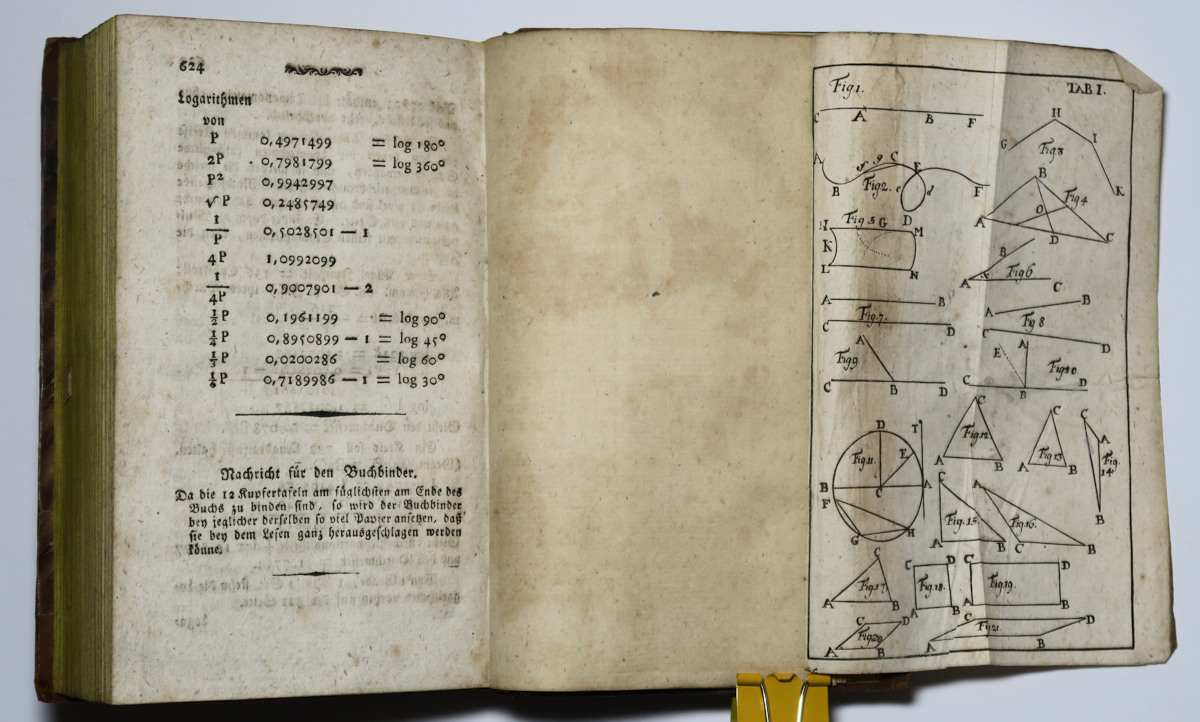 624
Logarithmen
von
P 0,4971499 = log 180°
2P 0,7981799 = log 360°
P² 0,9942997
√P 0,2485749
1/P 0,5028501 — 1
4P 1,0992099
1/4P 0,9007901 — 2
½P 0,1961199 = log 90°
¼P 0,8950899 — 1 = log 45°
⅓P 0,0200286 = log 60°
⅙P 0,7189986 — 1 = log 30°
Nachricht für den Buchbinder.
Da die 12 Kupfertafeln am füglichsten am Ende des
Buchs zu binden sind, so wird der Buchbinder
bey jeglicher derselben so viel Papier ansetzen, daß
sie bey dem Lesen ganz herausgeschlagen werden
könne.
TAB I.
Fig 1.
C A B F
H
G I
Fig 3
K
A f g C E
B Fig 2. e d F
D
B
Fig 4
A O D C
Fig. 5 G M
H
K
L N
B
A x Fig 6 C
A B
C Fig. 7. D
A B
Fig 8
C D
A
Fig 9
C B D
A
E
Fig 10.
C B D
D T
Fig. 11. E
B C A
F
G H
C
Fig 12
A B
C
Fig 13
A B
C
A
Fig. 14
B
C
Fig. 15
A B
A
Fig. 16.
C B
C
Fig 17
A B
C D
Fig 18.
A B
C D
Fig 19.
A B
C D
Fig 20
A B
C D
Fig 21.
A B